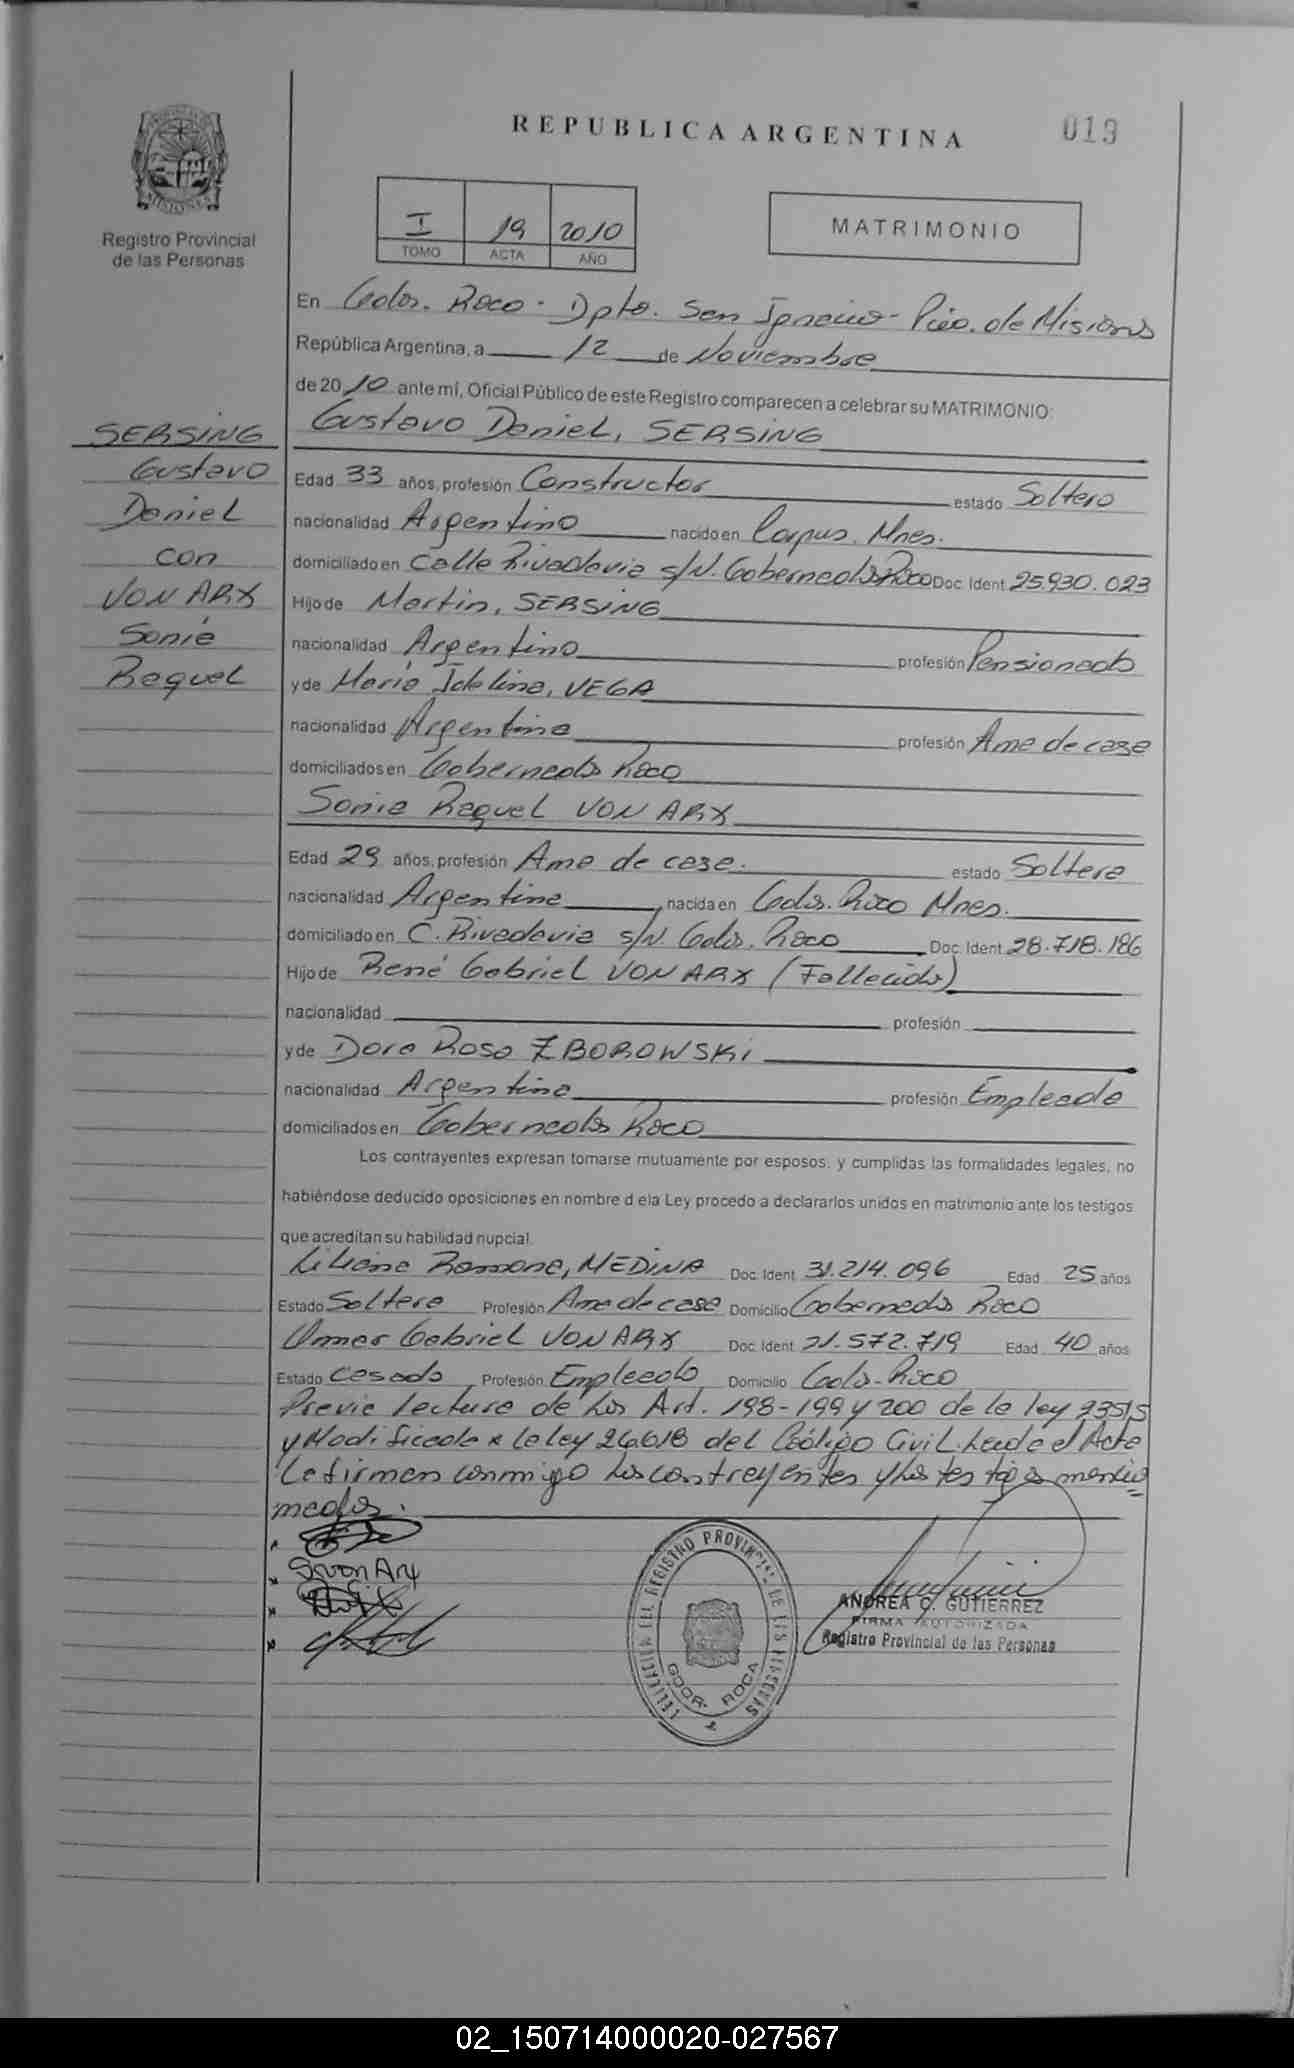 REPUBLICA ARGENTINA
019
MISIONES
Registro Provincial
de las Personas
I 19 2010
TOMO ACTA AÑO
MATRIMONIO
En Gdor. Roca - Dpto. San Ignacio - Pcia. de Misiones
República Argentina, a 12 de Noviembre
de 2010 ante mí, Oficial Público de este Registro comparecen a celebrar su MATRIMONIO:
SERSING
Gustavo
Daniel
con
VON ARX
Sonia
Raquel
Gustavo Daniel, SERSING
Edad 33 años, profesión Constructor estado Soltero
nacionalidad Argentino nacido en Corpus. Mnes.
domiciliado en Calle Rivadavia s/N. Gobernador Roca Doc. Ident. 25.930.023
Hijo de Martin, SERSING
nacionalidad Argentino profesión Pensionado
y de Maria Idelina, VEGA
nacionalidad Argentina profesión Ama de casa
domiciliados en Gobernador Roca
Sonia Raquel VON ARX
Edad 29 años, profesión Ama de casa. estado Soltera
nacionalidad Argentina nacida en Gdor. Roca Mnes.
domiciliado en C. Rivadavia s/N. Gdor. Roca Doc. Ident. 28.718.186
Hijo de René Gabriel VON ARX (Fallecido)
nacionalidad profesión
y de Dora Rosa ZBOROWSKI
nacionalidad Argentina profesión Empleada
domiciliados en Gobernador Roca
Los contrayentes expresan tomarse mutuamente por esposos, y cumplidas las formalidades legales, no
habiéndose deducido oposiciones en nombre d ela Ley procedo a declararlos unidos en matrimonio ante los testigos
que acreditan su habilidad nupcial.
Liliana Ramona, MEDINA Doc. Ident. 31.214.096 Edad 25 años
Estado Soltera Profesión Ama de casa Domicilio Gobernador Roca
Omar Gabriel VON ARX Doc. Ident. 21.572.719 Edad 40 años
Estado Casado Profesión Empleado Domicilio Gdor. Roca
Previa lectura de los Art. 198-199 y 200 de la ley 23515
y Modificada x la ley 26618 del Código Civil. Leida el Acta
la firman conmigo los contrayentes y los testigos mencio
nados.
S. von Arx
REGISTRO PROVINCIAL DE LAS PERSONAS
GDOR. ROCA
ANDREA C. GUTIERREZ
FIRMA AUTORIZADA
Registro Provincial de las Personas
02_150714000020-027567